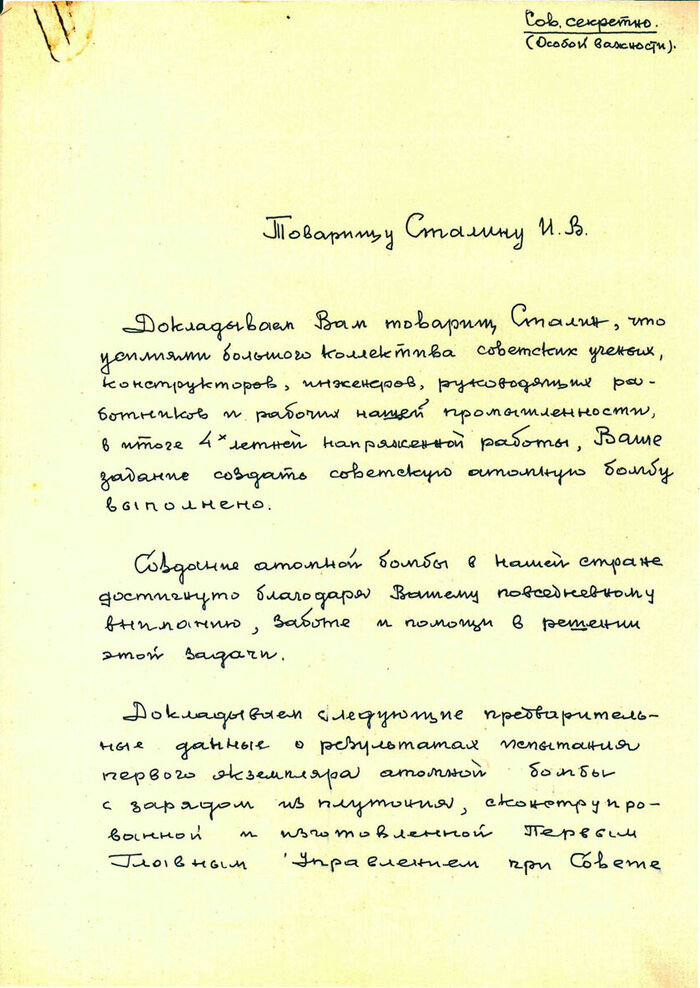 Сов. секретно.
(Особой важности).
Товарищу Сталину И. В.
Докладываем Вам товарищ Сталин, что
усилиями большого коллектива советских ученых,
конструкторов, инженеров, руководящих ра-
ботников и рабочих нашей промышленности,
в итоге 4х летней напряженной работы, Ваше
задание создать советскую атомную бомбу
выполнено.
Создание атомной бомбы в нашей стране
достигнуто благодаря Вашему повседневному
вниманию, заботе и помощи в решении
этой задачи.
Докладываем следующие предваритель-
ные данные о результатах испытания
первого экземпляра атомной бомбы
с зарядом из плутония, сконструиро-
ванной и изготовленной Первым
Главным Управлением при Совете